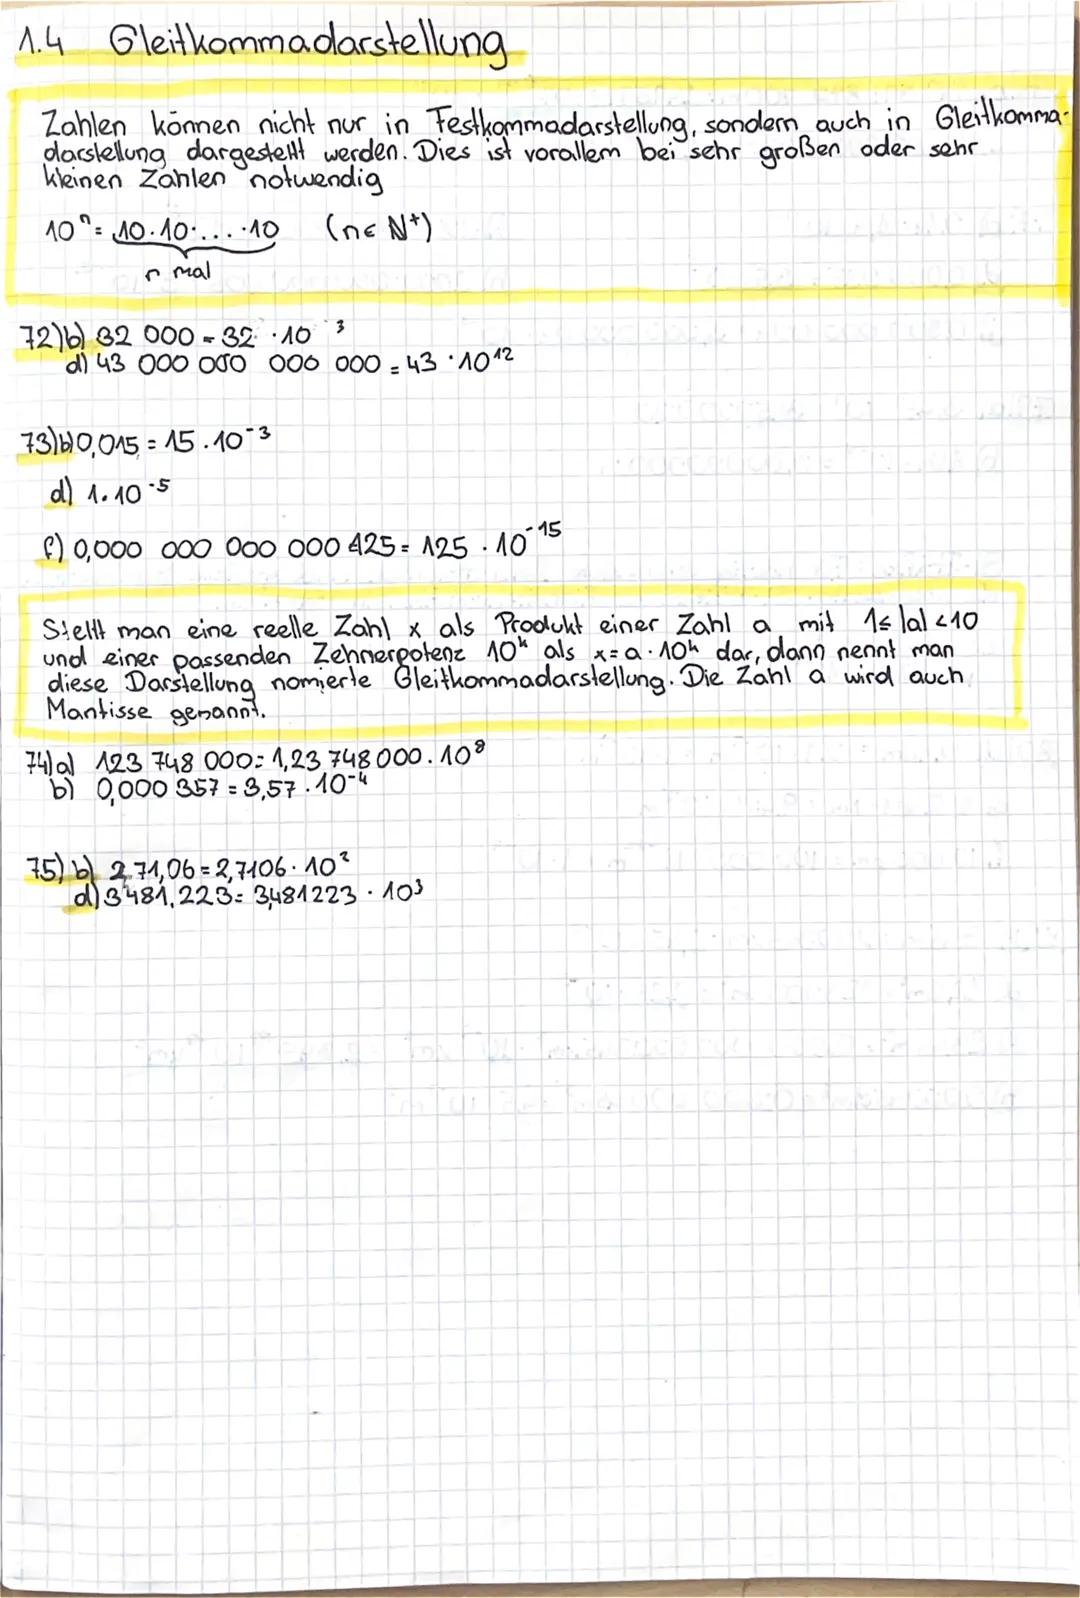 1.4 Gleitkommadarstellung
Zahlen können nicht nur in Festkommadarstellung, sondern auch in Gleitkomma-
darstellung dargestellt werden. Dies ist vorallem bei sehr großen oder sehr
kleinen Zahlen notwendig
10ⁿ = 10·10·...·10 (n∈ N⁺)
n mal
72)b) 32 000 = 32 · 10³
d) 43 000 000 000 000 = 43 · 10¹²
73)b) 0,015 = 15 . 10⁻³
d) 1. 10⁻⁵
f) 0,000 000 000 000 125 = 125 . 10⁻¹⁵
Stellt man eine reelle Zahl x als Produkt einer Zahl a mit 1≤ |a| <10
und einer passenden Zehnerpotenz 10ᵏ als x = a · 10ᵏ dar, dann nennt man
diese Darstellung normierte Gleitkommadarstellung. Die Zahl a wird auch
Mantisse genannt.
74)a) 123 748 000 = 1,23 748 000 . 10⁸
b) 0,000 357 = 3,57 . 10⁻⁴
75) b) 271,06 = 2,7106 · 10²
d) 3481,223 = 3,481223 · 10³